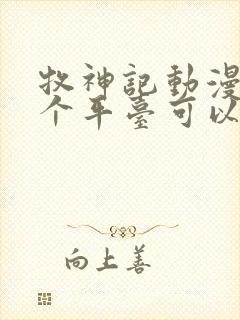 牧神記動漫
个平臺可以
向上善